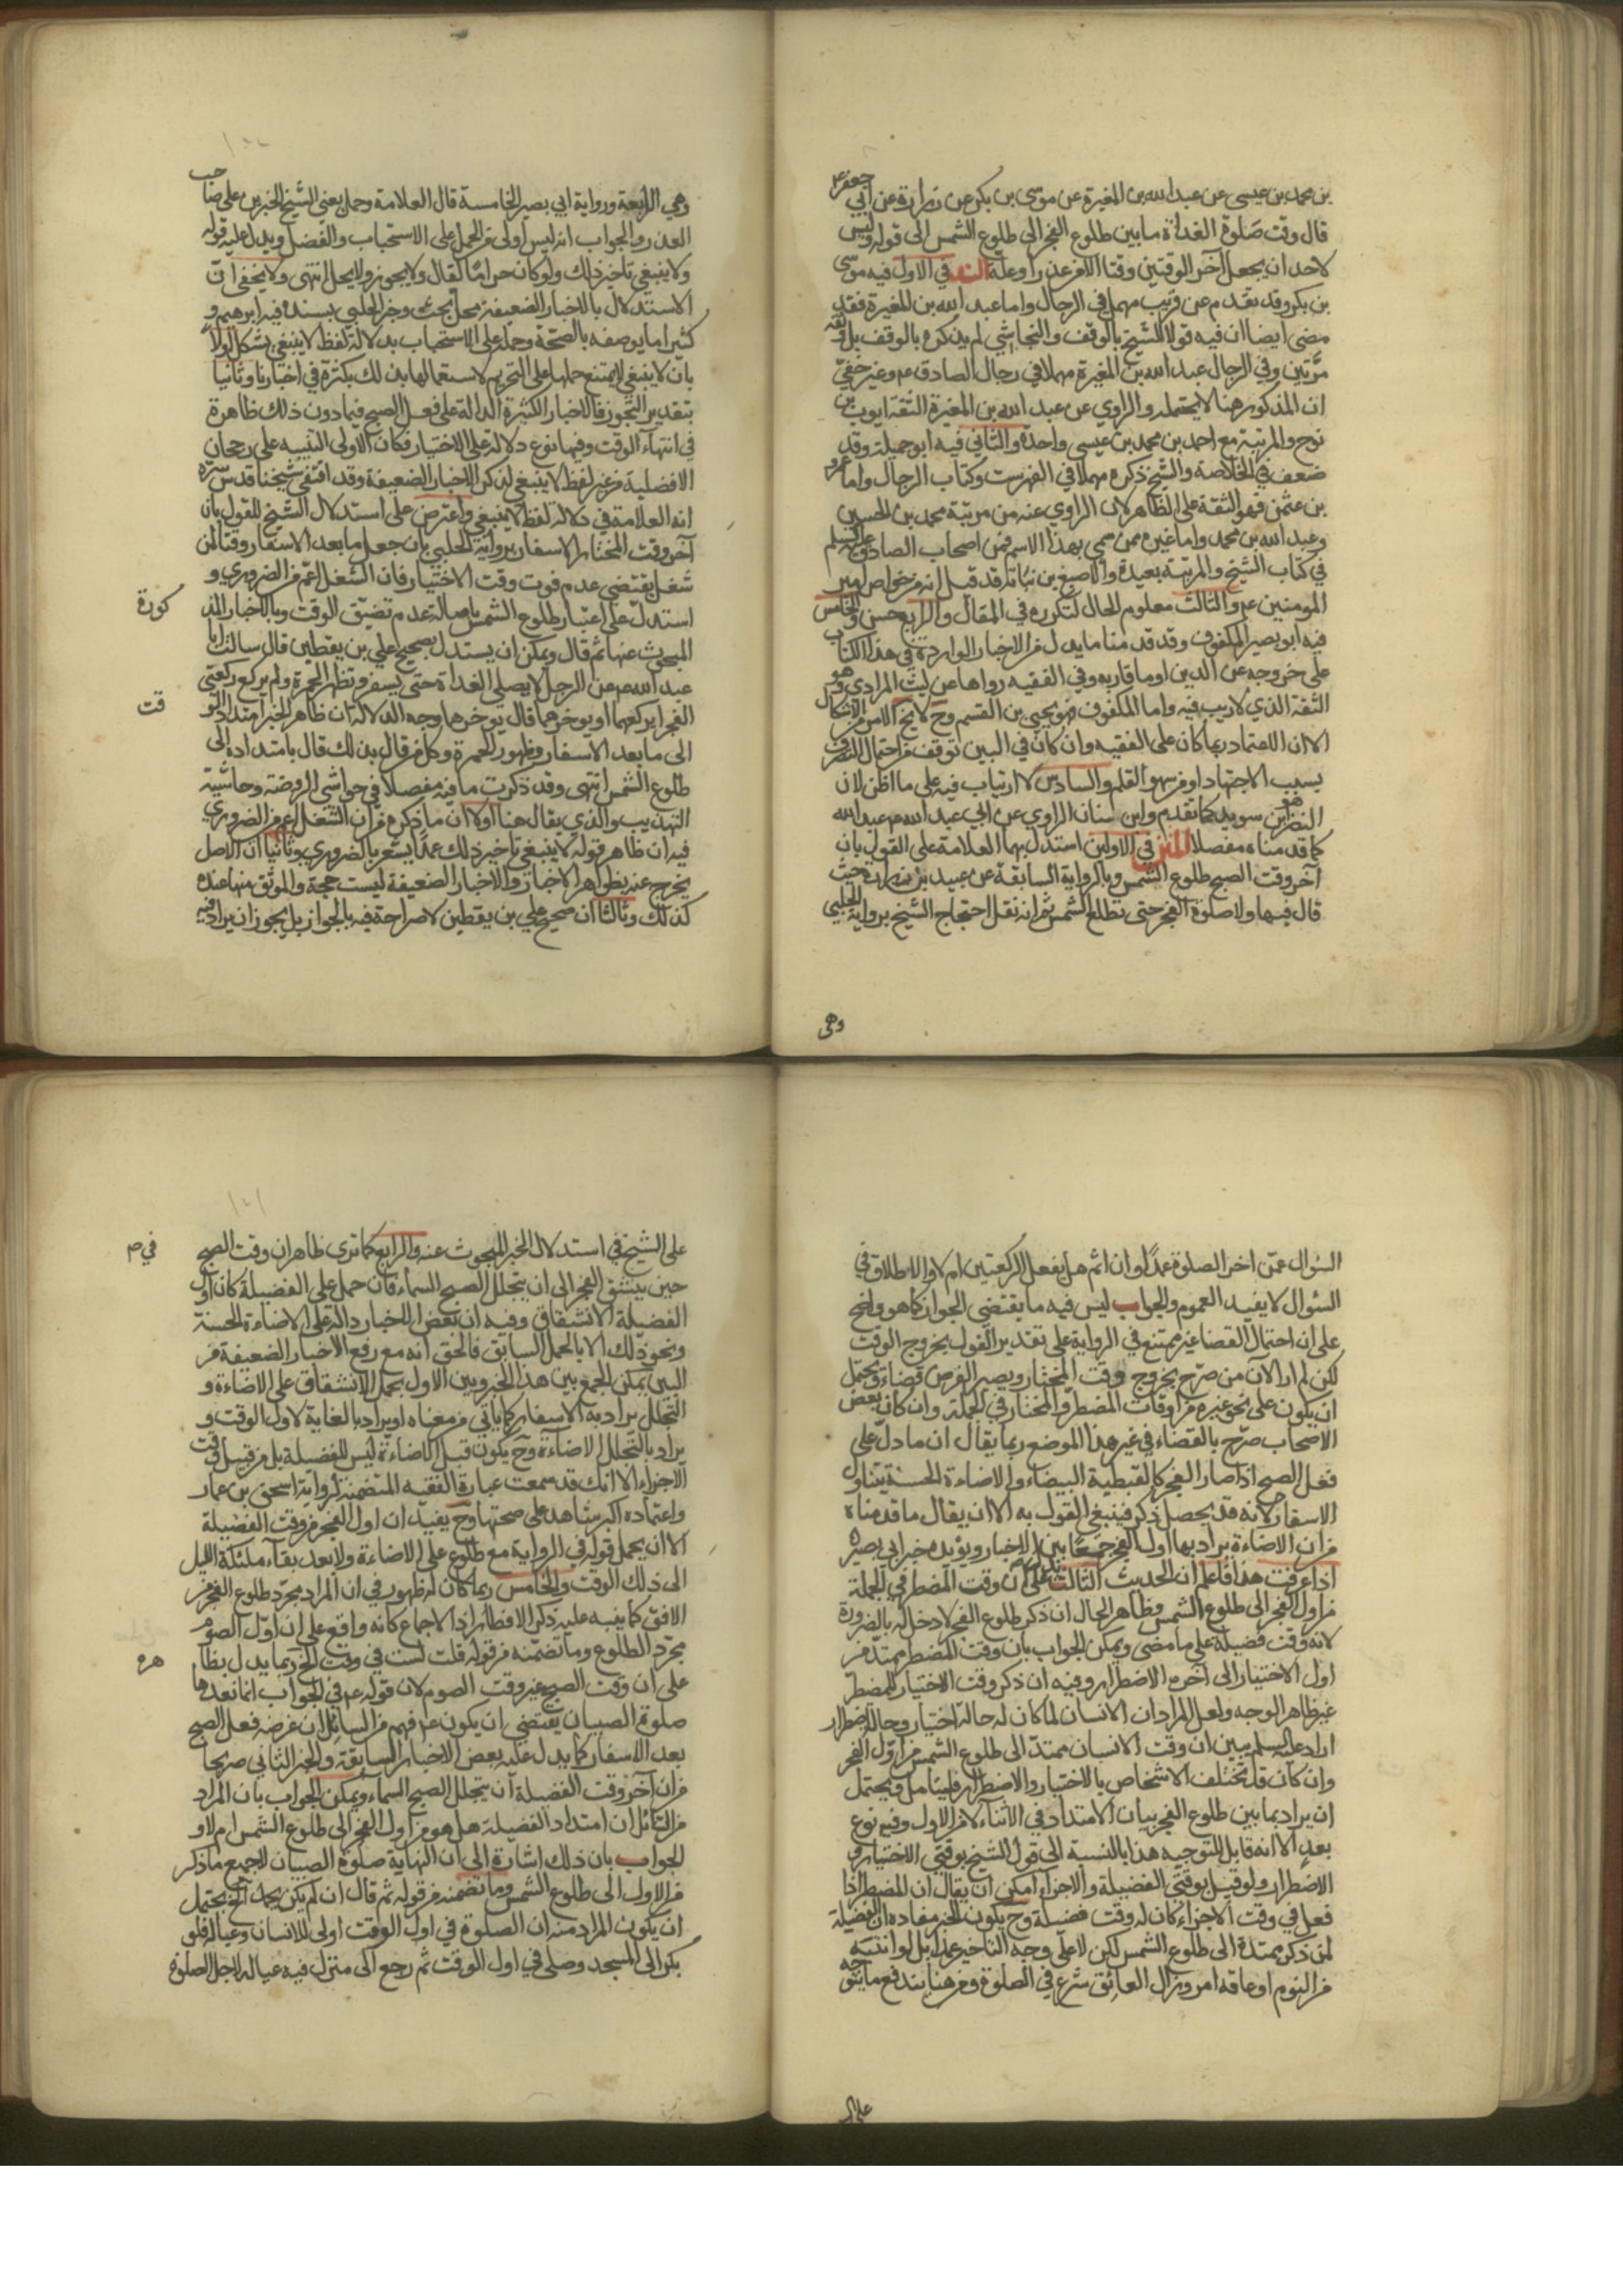 بن محمد بن عيسى عن عبد الله بن المغيرة عن موسى بن بكر عن زرارة عن ابي جعفر ع
قال وقت صلوة الغداة ما بين طلوع الفجر الى طلوع الشمس الى قوله وليس
لاحد ان يجعل آخر الوقتين وقتا الا من عذر او علة السند في الاول فيه موسى
بن بكر وقد تقدم عن قريب مهملا في الرجال واما عبد الله بن المغيرة فقد
مضى ايضا ان فيه قولا للشيخ بالوقف والنجاشي لم يذكره بالوقف بل وثقه
مرّتين وفي الرجال عبد الله بن المغيرة مهملا في رجال الصادق ع م وغير خفيّ
ان المذكور هنا لا يحتمله والراوي عن عبد الله بن المغيرة الثقة ايوب بن
نوح والمرتبة مع احمد بن محمد بن عيسى واحدة والثاني فيه ابو جميلة وقد
ضعف في الخلاصة والشيخ ذكره مهملا في الفهرست وكتاب الرجال واما عمرو
بن عثمن فهو الثقة على الظاهر لان الراوي عنه من مرتبة محمد بن الحسين
وعبد الله بن محمد واما غيره ممن سمي بهذا الاسم فمن اصحاب الصادق عليه السلم
في كتاب الشيخ والمرتبة بعيدة والاصبغ بن نباتة قد قيل انه من خواص امير
المومنين ع م والثالث معلوم الحال لتكرره في المقال والرابع حسن والخامس
فيه ابو بصير المكفوف وقد قدمنا ما يدل من الاخبار الواردة في هذا الكتاب
على خروجه عن الدين او ما قاربه وفي الفقيه رواها عن ليث المرادي وهو
الثقة الذي لا ريب فيه واما المكفوف فهو يحيى بن القسم وح لا يخ الامر من الاشكال
الا ان الاعتماد ربما كان على الفقيه وان كان في البين توقف من احتمال التصرف
بسبب الاجتهاد او من سهو القلم والسادس لا ارتياب فيه على ما اظن لان
النضر هو ابن سويد كما تقدم وابن سنان الراوي عن ابي عبد الله ع م عبد الله
كما قدمناه مفصلا المتن في الاولين استدل بهما العلامة على القول بان
آخر وقت الصبح طلوع الشمس وبالرواية السابقة عن عبيد بن زرارة حيث
قال فيها ولا صلوة الفجر حتى تطلع الشمس ثم انه نقل احتجاج الشيخ برواية الحلبي
وهي
وهي الرابعة ورواية ابي بصير الخامسة قال العلامة وحمل يعني الشيخ الخبرين على صاحب
العذر والجواب انه ليس اولى من الحمل على الاستحباب والفضل ويدل عليه قوله
ولا ينبغي تاخير ذلك ولو كان حراما لقال ولا يجوز ولا يحل انتهى ولا يخفى ان
الاستدلال بالاخبار الضعيفة محل بحث وخبر الحلبي بسنده فيه ابرهيم و
كثيرا ما يوصفه بالصحّة وحمله على الاستحباب بدلالة لفظ لا ينبغي يشكل اولا
بان لا ينبغي لا يمتنع حملها على التحريم لاستعمالها بذلك بكثرة في اخبارنا وثانيا
بتقدير التجوز فالاخبار الكثيرة الدالة على فعل الصبح فيما دون ذلك ظاهرة
في انتهاء الوقت وفيها نوع دلالة على الاختيار فكان الاولى التنبيه على رجحان
الافضلية من غير لفظ لا ينبغي لذكر الاخبار الضعيفة وقد اقتفى شيخنا قدس سره
اثر العلامة في دلالة لفظ لا ينبغي واعترض على استدلال الشيخ للقول بان
آخر وقت المختار الاسفار برواية الحلبي بان جعل ما بعد الاسفار وقتا لمن
شغل يقتضي عدم فوت وقت الاختيار فان الشغل اعم من الضروري و
استدل على اعتبار طلوع الشمس باصالة عدم تضيّق الوقت وبالاخبار المذ
كورة
المبحوث عنها ثم قال ويمكن ان يستدل بصحيح علي بن يقطين قال سالت ابا
عبد الله ع م عن الرجل لا يصلي الغداة حتى يسفر وتظهر الحمرة ولم يركع ركعتي
الفجر ايركعهما او يوخرهما قال يوخرهما وجه الدلالة ان ظاهر الخبر امتداد الو
قت
الى ما بعد الاسفار وظهور الحمرة وكل من قال بذلك قال بامتداده الى
طلوع الشمس انتهى وقد ذكرت ما فيه مفصلا في حواشي الروضة وحاشية
التهذيب والذي يقال هنا اولا ان ما ذكره من ان الشغل اعم من الضروري
فيه ان ظاهر قوله لا ينبغي تاخير ذلك عمدا يشعر بالضروري وثانيا ان الاصل
يخرج عنه بظواهر الاخبار والاخبار الضعيفة ليست حجة والموثق منها عنده
كذلك وثالثا ان صحيح علي بن يقطين لا صراحة فيه بالجواز بل يجوز ان يراد فيه
السؤال عمّن اخر الصلوة عمدًا وان اثم هل يفعل الركعتين ام لا والاطلاق في
السؤال لا يفيد العموم والجواب ليس فيه ما يقتضي الجواز كما هو واضح
على ان احتمال القضا غير ممتنع في الرواية على تقدير القول بخروج الوقت
لكن لم ار الآن من صرّح بخروج وقت المختار ويصير الفرض قضاء ويحتمل
ان يكون على نحو غيره من اوقات المضطر والمختار في الجملة وان كان بعض
الاصحاب صرّح بالقضاء في غير هذا الموضع ربما يقال ان ما دل على
فعل الصبح اذا صار الفجر كالقبطية البيضاء والاضاءة الحسنة يتناول
الاسفار لانه قد يحصل ذكر فينبغي القول به الا ان يقال ما قدمناه
من ان الاضاءة يراد بها اول الفجر جمعًا بين الاخبار ويؤيده خبر ابي بصير
اذا عرفت هذا فاعلم ان الحديث الثالث يدل على ان وقت المضطر في الجملة
من اول الفجر الى طلوع الشمس وظاهر الحال ان ذكر طلوع الفجر لا دخل له بالضرورة
لانه وقت فضيلة على ما مضى ويمكن الجواب بان وقت المضطر ممتد من
اول الاختيار الى آخره الاضطرار وفيه ان ذكر وقت الاختيار للمضطر
غير ظاهر الوجه ولعل المراد ان الانسان لما كان له حالة اختيار وحالة اضطرار
اراد عليه السلم يبين ان وقت الانسان ممتد الى طلوع الشمس من اول الفجر
وان كان قد تختلف الاشخاص بالاختيار والاضطرار فليتامل ويحتمل
ان يراد بما بين طلوع الفجر بيان الامتداد في الاثناء لا من الاول وفيه نوع
بعد الا انه قابل للتوجيه هذا بالنسبة الى قول الشيخ بوقتي الاختيار و
الاضطرار ولو قيل بوقتي الفضيلة والاجزاء امكن ان يقال ان المضطر اذا
فعل في وقت الاجزاء كان له وقت فضيلة وح يكون الخبر مفاده ان الفضيلة
لمن ذكر ممتدة الى طلوع الشمس لكن لا على وجه التاخير عمدا بل لو انتبه
من النوم او عاقه امر وزال العائق شرع في الصلوة ومن هنا يندفع ما يتوجه
على الشيخ في استدلال الخبر المبحوث عنه والرابع كما ترى ظاهر ان وقت الصبح
حين ينشق الفجر الى ان يتجلل الصبح السماء فان حمل على الفضيلة كان اول
الفضيلة الانشقاق وفيه ان بعض الاخبار دالة على الاضاءة الحسنة
ونحو ذلك الا بالحمل السابق فالحق انه مع رفع الاخبار الضعيفة من
البين يمكن الجمع بين هذا الخبر وبين الاول بحمل الانشقاق على الاضاءة و
التجلل يراد به الاسفار كما ياتي من معناه او يراد بالغاية لاول الوقت و
يراد بالتجلل الاضاءة وح يكون قبل الاضاءة ليس للفضيلة بل من قبيل وقت
الاجزاء الا انك قد سمعت عبارة الفقيه المتضمنة لرواية اسحق بن عمار
واعتماده اكبر شاهد على صحتها وح يفيد ان اول الفجر من وقت الفضيلة
الا ان يحمل قوله في الرواية مع طلوع على الاضاءة ولا بعد بقاء ملئكة الليل
الى ذلك الوقت والخامس ربما كان له ظهور في ان المراد مجرد طلوع الفجر من
الافق كما ينبه عليه ذكر الافطار اذ الاجماع كانه واقع على ان اول الصوم
مجرد الطلوع وما تضمنه من قوله قلت لست في وقت الخ ربما يدل بظا
هره
على ان وقت الصبح غير وقت الصوم لان قوله ع م في الجواب انما نعدها
صلوة الصبيان يقتضي ان يكون ع م فهم من السائل ان غرضه فعل الصبح
بعد الاسفار كما يدل عليه بعض الاخبار السابقة والخبر الثاني صريحا
من ان آخر وقت الفضيلة ان يتجلل الصبح السماء ويمكن الجواب بان المراد
من السائل ان امتداد الفضيلة هل هو من اول الفجر الى طلوع الشمس ام لا و
الجواب بان ذلك اشارة الى ان النهاية صلوة الصبيان لا جميع ما ذكر
من الاول الى طلوع الشمس وما تضمنه من قوله ثم قال ان لم يكن يحمد الخ يحتمل
ان يكون المراد منه ان الصلوة في اول الوقت اولى للانسان وعياله فلو
بكر الى المسجد وصلى في اول الوقت ثم رجع الى منزل فيه عياله لاجل الصلوة